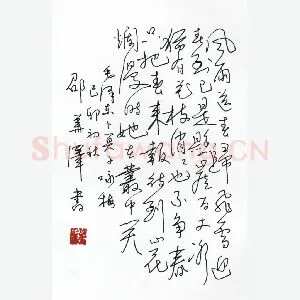 風雨送春歸飛雪迎
春到已是懸崖百丈冰
猶有花枝俏俏也不爭春
只把春來報待到山花
爛漫時她在叢中笑
毛澤東卜算子咏梅
己卯初秋
邵華澤書